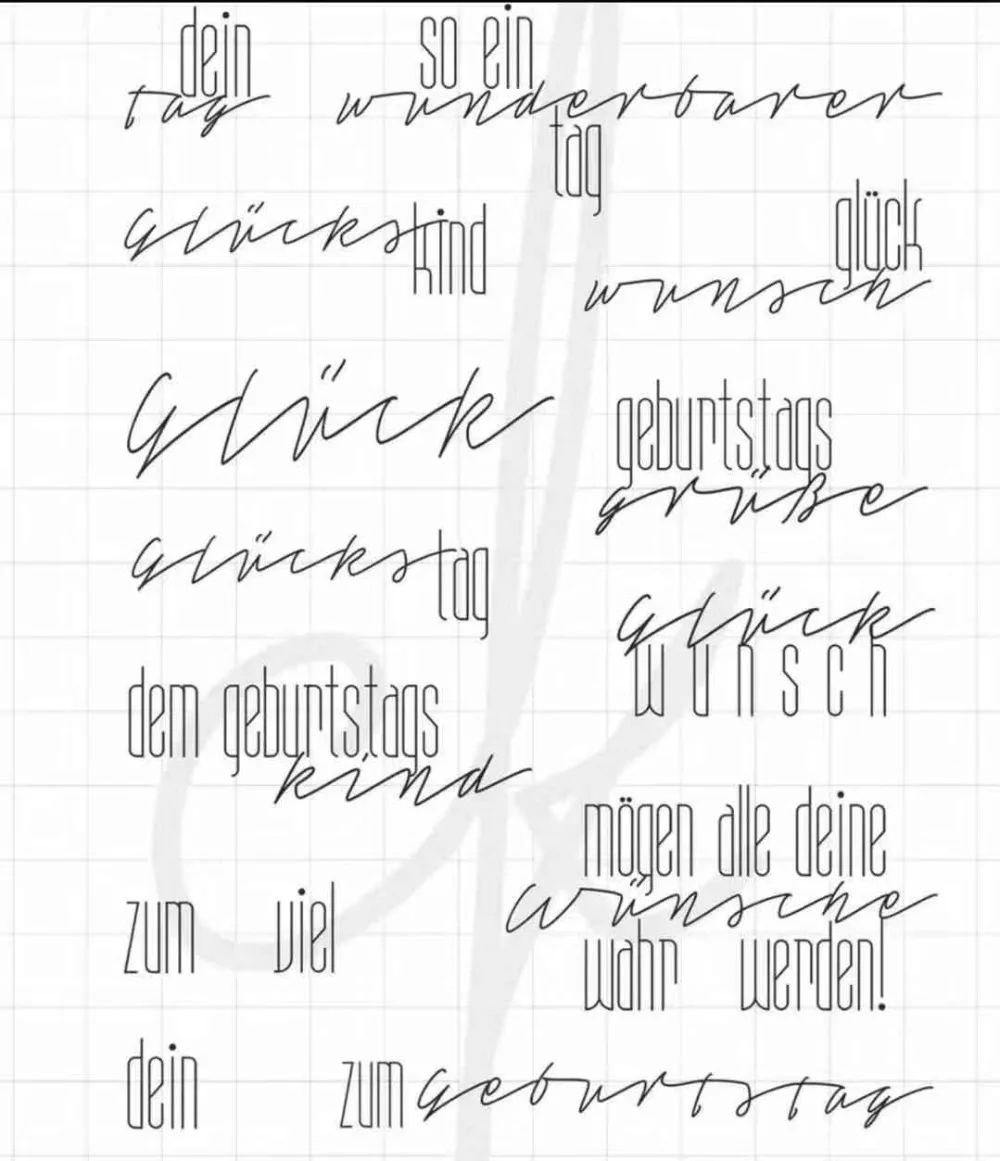 dein
tag
so ein
wunderbarer
tag
glückskind
glück
wunsch
glück
geburtstags
grüße
glückstag
glück
wunsch
dem geburtstags
kind
mögen alle deine
wünsche
wahr werden!
zum viel
dein zum geburtstag